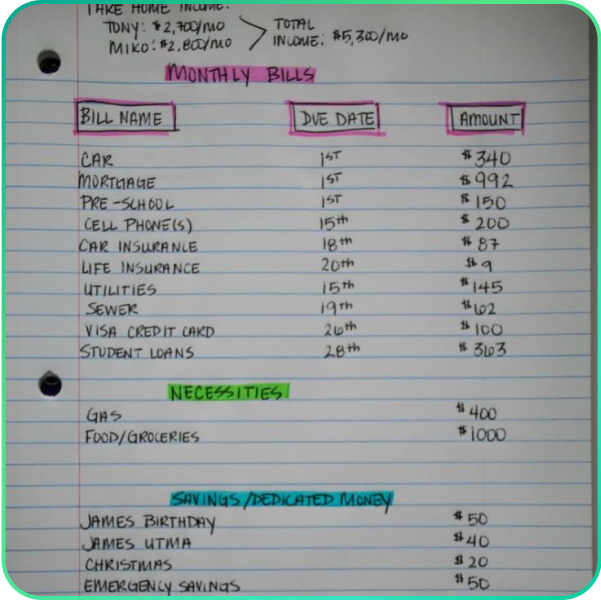 TAKE HOME INCOME:
TONY: $2,700/MO
MIKO: $2,800/MO
TOTAL
INCOME: $5,300/MO
MONTHLY BILLS
BILL NAME DUE DATE AMOUNT
CAR 1ST $340
MORTGAGE 1ST $992
PRE-SCHOOL 1ST $150
CELL PHONE(S) 15th $200
CAR INSURANCE 18th $87
LIFE INSURANCE 20th $9
UTILITIES 15th $145
SEWER 19th $62
VISA CREDIT CARD 26th $100
STUDENT LOANS 28th $363
NECESSITIES
GAS $400
FOOD/GROCERIES $1000
SAVINGS/DEDICATED MONEY
JAMES BIRTHDAY $50
JAMES UTMA $40
CHRISTMAS $20
EMERGENCY SAVINGS $50